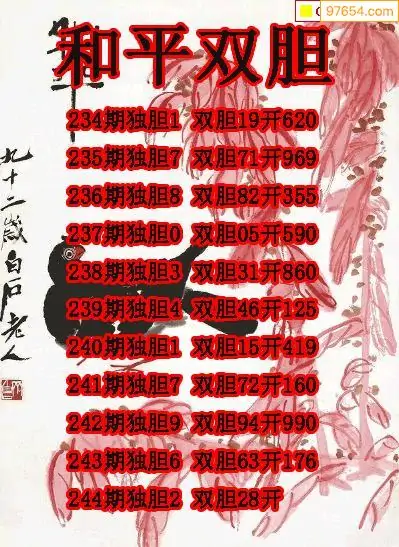 97654.com
和平双胆
234期独胆1 双胆19开620
235期独胆7 双胆71开969
236期独胆8 双胆82开355
237期独胆0 双胆05开590
238期独胆3 双胆31开860
239期独胆4 双胆46开125
240期独胆1 双胆15开419
241期独胆7 双胆72开160
242期独胆9 双胆94开990
243期独胆6 双胆63开176
244期独胆2 双胆28开
九十二歲白石老人